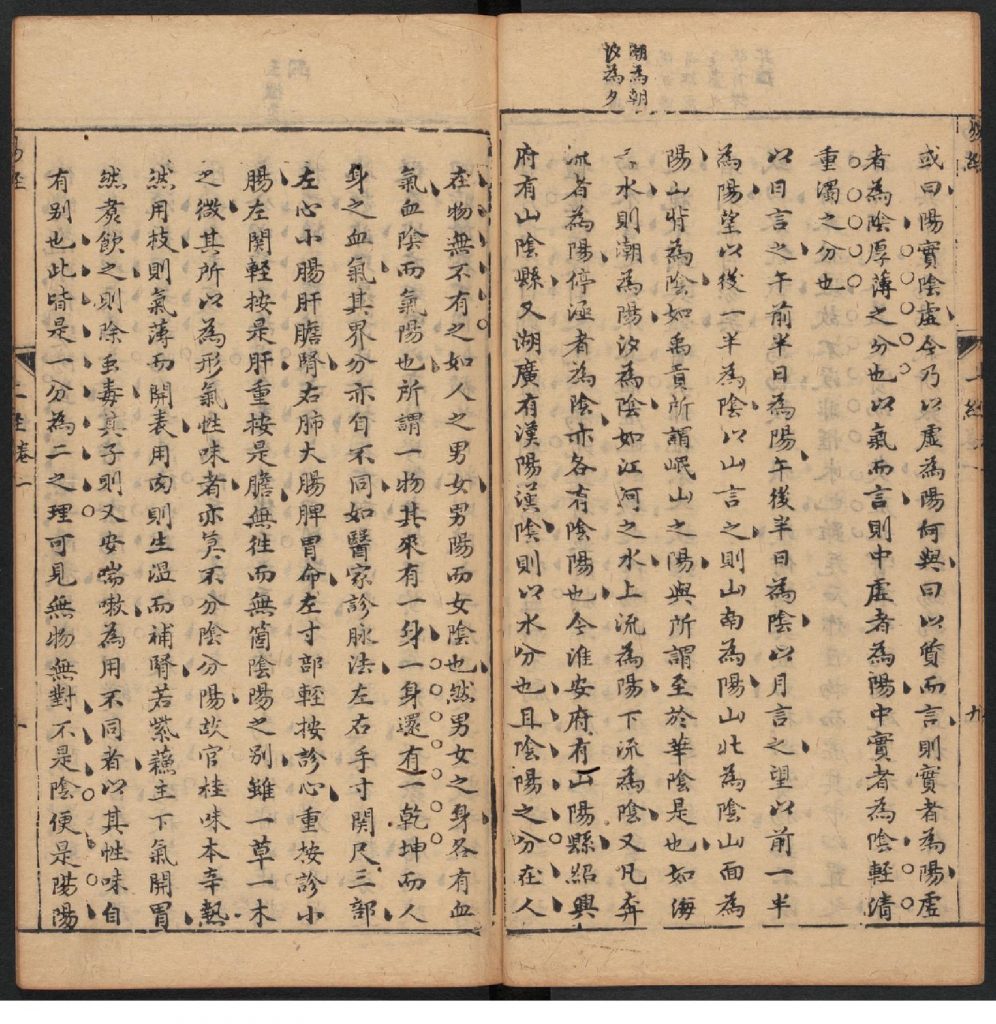 潮為朝
汐為夕
或曰陽實陰虛今乃以虛為陽何與曰以質而言則實者為陽虛
者為陰厚薄之分也以氣而言則中虛者為陽中實者為陰輕清
重濁之分也
以日言之午前半日為陽午後半日為陰以月言之望以前一半
為陽望以後一半為陰以山言之則山南為陽山北為陰山面為
陽山背為陰如禹貢所謂岷山之陽與所謂至於華陰是也如海
之水則潮為陽汐為陰如江河之水上流為陽下流為陰又凡奔
流者為陽停滀者為陰亦各有陰陽也今淮安府有山陽縣紹興
府有山陰縣又湖廣有漢陽漢陰則以水分也且陰陽之分在人
九
在物無不有之如人之男女男陽而女陰也然男女之身各有血
氣血陰而氣陽也所謂一物其來有一身一身還有一乾坤而人
身之血氣其界分亦自不同如醫家診脉法左右手寸関尺三部
左心小腸肝膽腎右肺大腸脾胃命左寸部輕按診心重按診小
腸左関輕按是肝重按是膽無徃而無箇陰陽之別雖一草一木
之微其所以為形氣性味者亦莫不分陰分陽故官桂味本辛熱
然用枝則氣薄而開表用肉則生温而補腎若紫蘓主下氣開胃
然煮飲之則除虫毒其子則又安喘嗽為用不同者以其性味自
有别也此皆是一分為二之理可見無物無對不是陰便是陽陽
易經
上經卷一
十